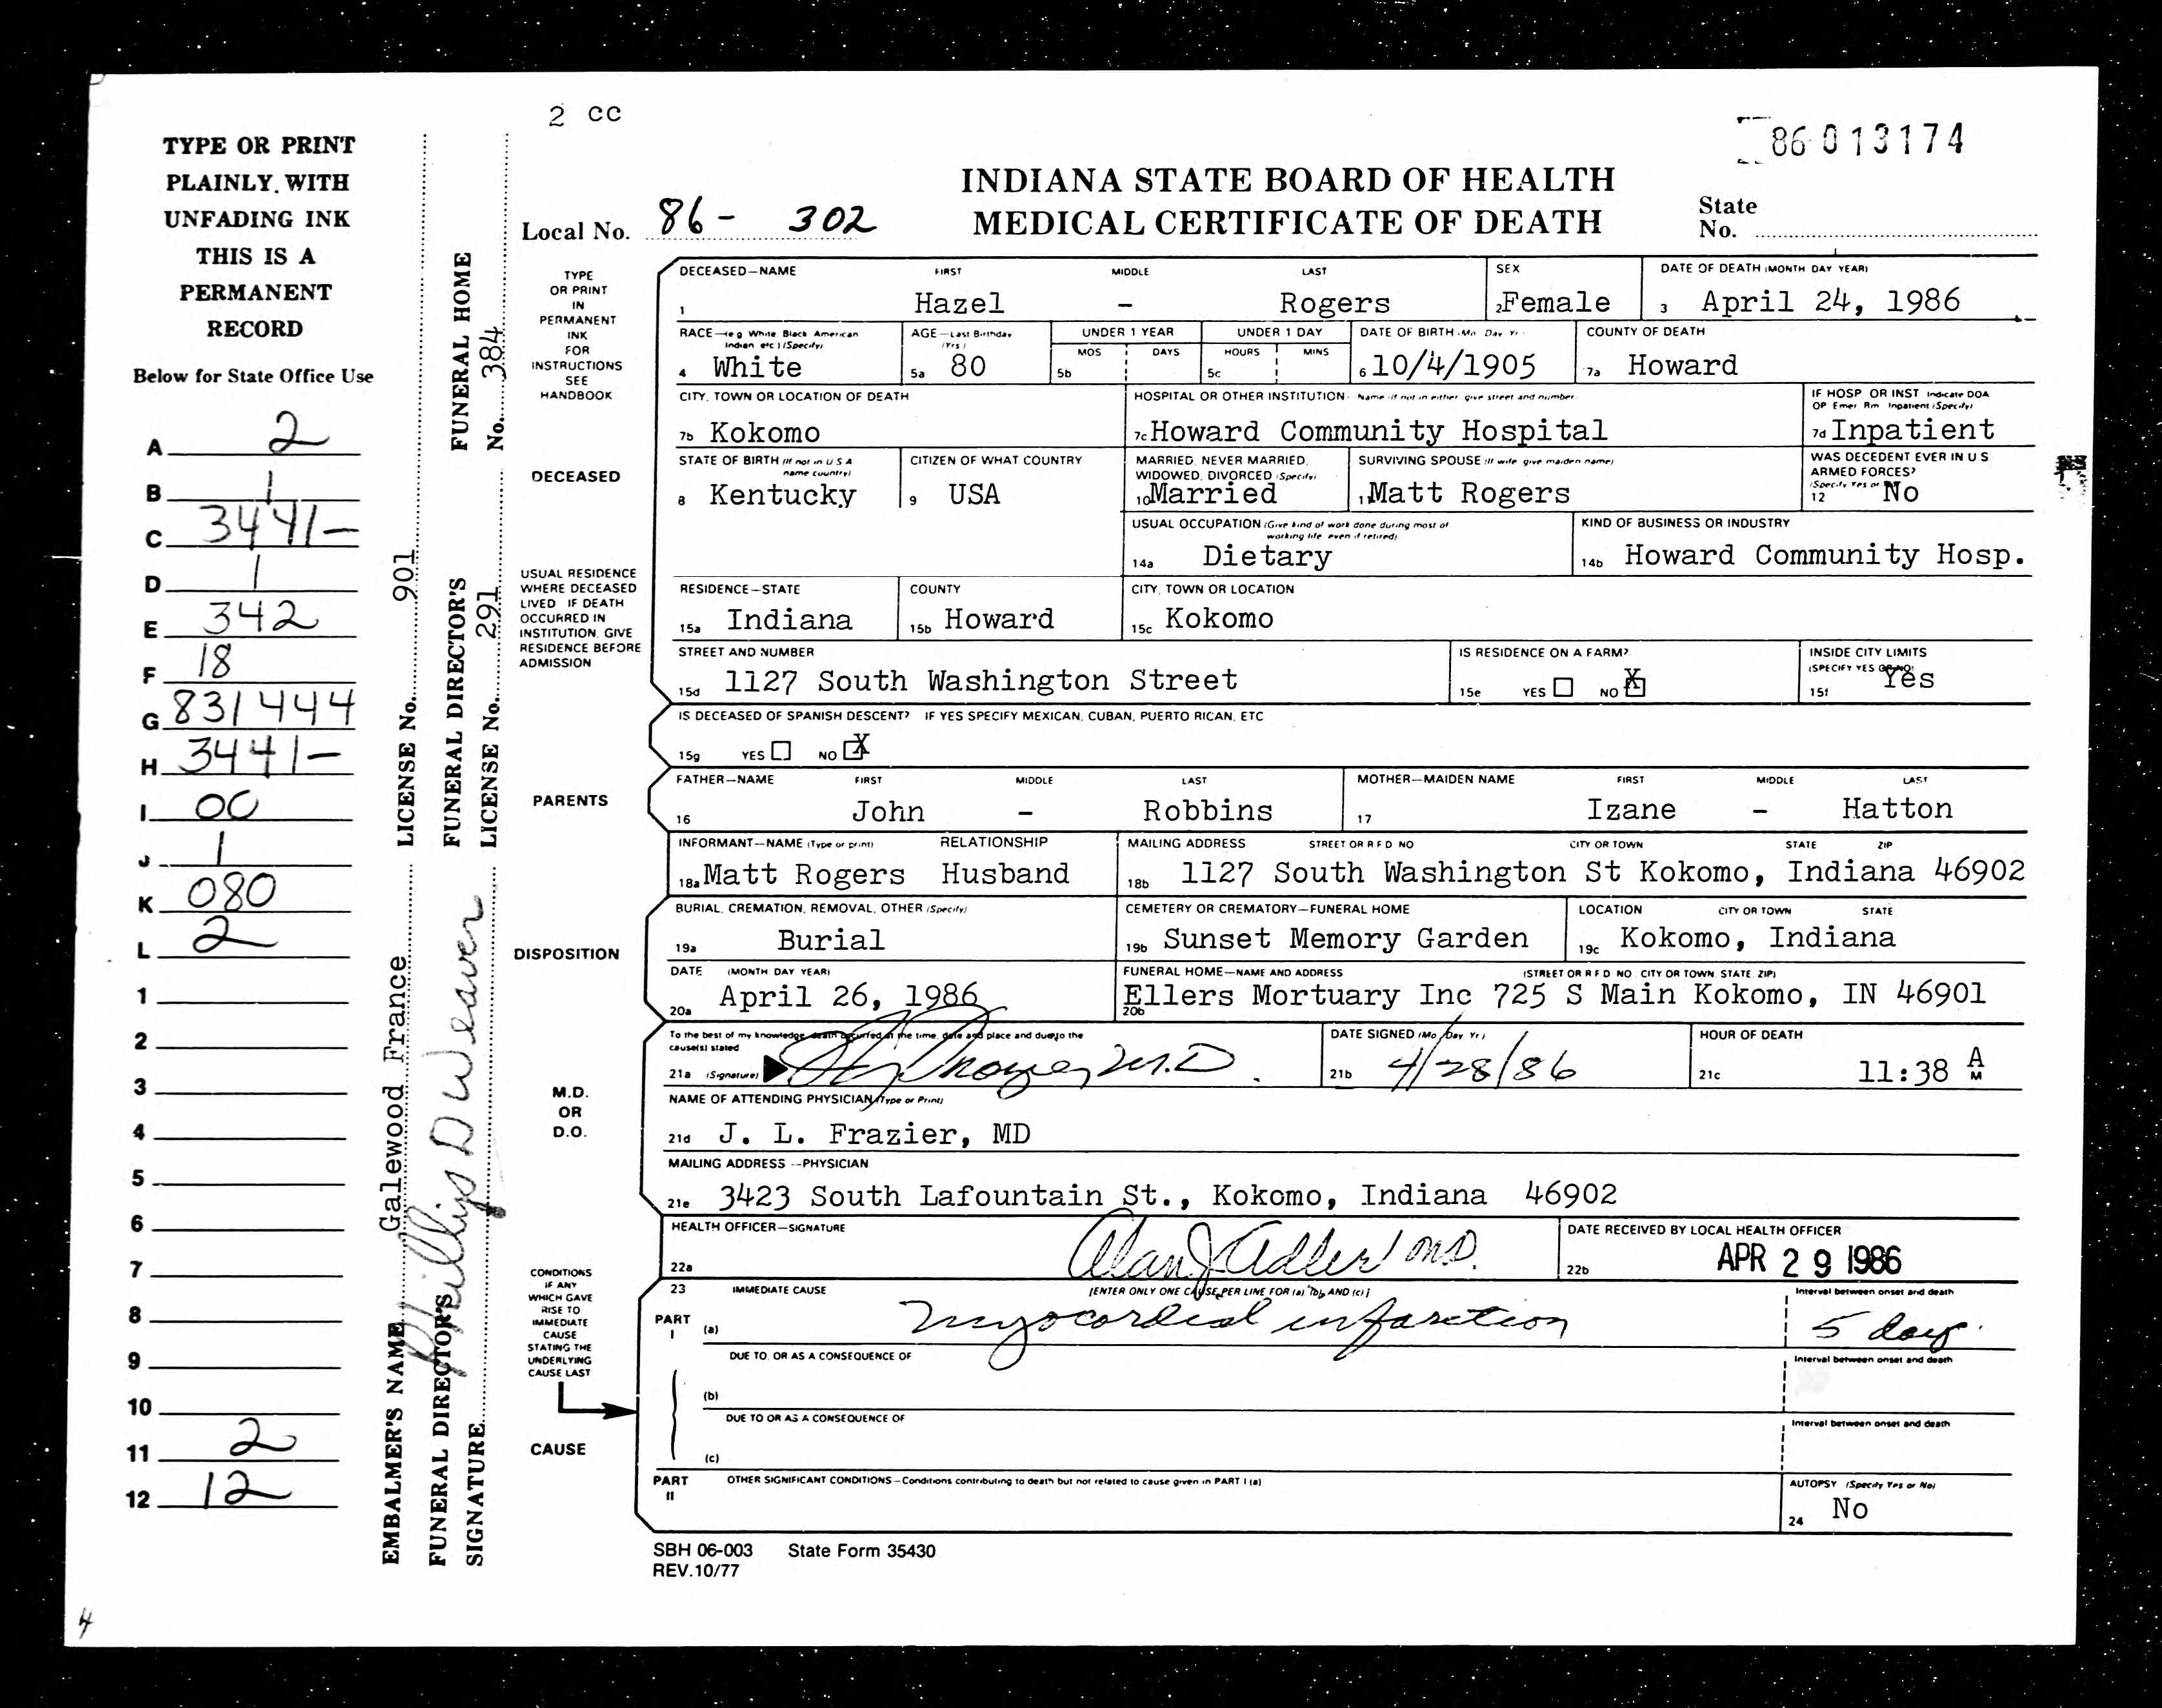 2 cc
86 013174
INDIANA STATE BOARD OF HEALTH
MEDICAL CERTIFICATE OF DEATH
Local No. 86- 302
State
No.
TYPE OR PRINT
PLAINLY, WITH
UNFADING INK
THIS IS A
PERMANENT
RECORD
Below for State Office Use
A 2
B 1
C 3441-
D 1
E 342
F 18
G 831444
H 3441-
I 00
J 1
K 080
L 2
1
2
3
4
5
6
7
8
9
10
11 2
12 12
EMBALMER'S NAME Galewood France LICENSE No. 901
FUNERAL DIRECTOR'S FUNERAL DIRECTOR'S FUNERAL HOME
SIGNATURE Phillis D Weaver LICENSE No. 291 No. 384
TYPE
OR PRINT
IN
PERMANENT
INK
FOR
INSTRUCTIONS
SEE
HANDBOOK
DECEASED
USUAL RESIDENCE
WHERE DECEASED
LIVED IF DEATH
OCCURRED IN
INSTITUTION, GIVE
RESIDENCE BEFORE
ADMISSION
PARENTS
DISPOSITION
M.D.
OR
D.O.
CONDITIONS
IF ANY
WHICH GAVE
RISE TO
IMMEDIATE
CAUSE
STATING THE
UNDERLYING
CAUSE LAST
CAUSE
DECEASED—NAME FIRST MIDDLE LAST SEX DATE OF DEATH (MONTH DAY YEAR)
1 Hazel - Rogers 2 Female 3 April 24, 1986
RACE—(e g White, Black, American Indian etc ) (Specify) AGE—Last Birthday (Yrs ) UNDER 1 YEAR UNDER 1 DAY DATE OF BIRTH (Mo Day Yr ) COUNTY OF DEATH
MOS DAYS HOURS MINS
4 White 5a 80 5b 5c 6 10/4/1905 7a Howard
CITY, TOWN OR LOCATION OF DEATH HOSPITAL OR OTHER INSTITUTION- Name (If not in either give street and number) IF HOSP OR INST Indicate DOA OP Emer Rm Inpatient (Specify)
7b Kokomo 7c Howard Community Hospital 7d Inpatient
STATE OF BIRTH (If not in U S A name country) CITIZEN OF WHAT COUNTRY MARRIED, NEVER MARRIED, WIDOWED, DIVORCED (Specify) SURVIVING SPOUSE (If wife give maiden name) WAS DECEDENT EVER IN U S ARMED FORCES? (Specify Yes or No)
8 Kentucky 9 USA 10 Married 1 Matt Rogers 12 No
USUAL OCCUPATION (Give kind of work done during most of working life even if retired) KIND OF BUSINESS OR INDUSTRY
14a Dietary 14b Howard Community Hosp.
RESIDENCE—STATE COUNTY CITY, TOWN OR LOCATION
15a Indiana 15b Howard 15c Kokomo
STREET AND NUMBER IS RESIDENCE ON A FARM? INSIDE CITY LIMITS (SPECIFY YES OR NO)
15d 1127 South Washington Street 15e YES NO X 15f Yes
IS DECEASED OF SPANISH DESCENT? IF YES SPECIFY MEXICAN, CUBAN, PUERTO RICAN, ETC
15g YES NO X
FATHER—NAME FIRST MIDDLE LAST MOTHER—MAIDEN NAME FIRST MIDDLE LAST
16 John - Robbins 17 Izane - Hatton
INFORMANT—NAME (Type or print) RELATIONSHIP MAILING ADDRESS STREET OR R F D NO CITY OR TOWN STATE ZIP
18a Matt Rogers Husband 18b 1127 South Washington St Kokomo, Indiana 46902
BURIAL, CREMATION, REMOVAL, OTHER (Specify) CEMETERY OR CREMATORY—FUNERAL HOME LOCATION CITY OR TOWN STATE
19a Burial 19b Sunset Memory Garden 19c Kokomo, Indiana
DATE (MONTH DAY YEAR) FUNERAL HOME—NAME AND ADDRESS (STREET OR R F D NO CITY OR TOWN STATE ZIP)
20a April 26, 1986 20b Ellers Mortuary Inc 725 S Main Kokomo, IN 46901
To the best of my knowledge, death occurred at the time, date and place and due to the cause(s) stated DATE SIGNED (Mo Day Yr) HOUR OF DEATH
21a (Signature) M.D. 21b 4/28/86 21c 11:38 A M
NAME OF ATTENDING PHYSICIAN (Type or Print)
21d J. L. Frazier, MD
MAILING ADDRESS --PHYSICIAN
21e 3423 South Lafountain St., Kokomo, Indiana 46902
HEALTH OFFICER—SIGNATURE DATE RECEIVED BY LOCAL HEALTH OFFICER
22a Alan J Adler MD. 22b APR 29 1986
23 IMMEDIATE CAUSE [ENTER ONLY ONE CAUSE PER LINE FOR (a) (b), AND (c)] Interval between onset and death
PART I (a) myocardial infarction 5 days
DUE TO, OR AS A CONSEQUENCE OF Interval between onset and death
(b)
DUE TO OR AS A CONSEQUENCE OF Interval between onset and death
(c)
PART II OTHER SIGNIFICANT CONDITIONS—Conditions contributing to death but not related to cause given in PART I (a) AUTOPSY (Specify Yes or No)
24 No
SBH 06-003 State Form 35430
REV.10/77
4